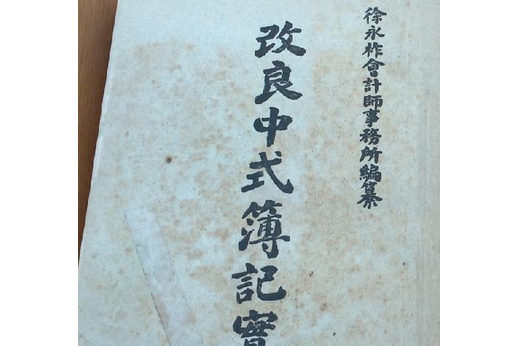 徐永祚會計師事務所編纂
改良中式簿記實